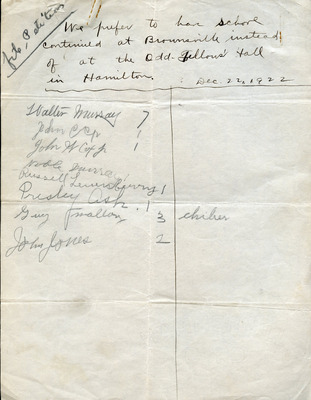 Petition
We prefer to have school
continued at Brownsville instead
of at the Odd-Fellows' Hall
in Hamilton. Dec. 22, 1922
Walter Murray 7
John C Cox 1
John W Cox Jr. 1
Noble Murray
Russell
Presley Ash 1
Guy Smallon 3 childer
John Jones 2